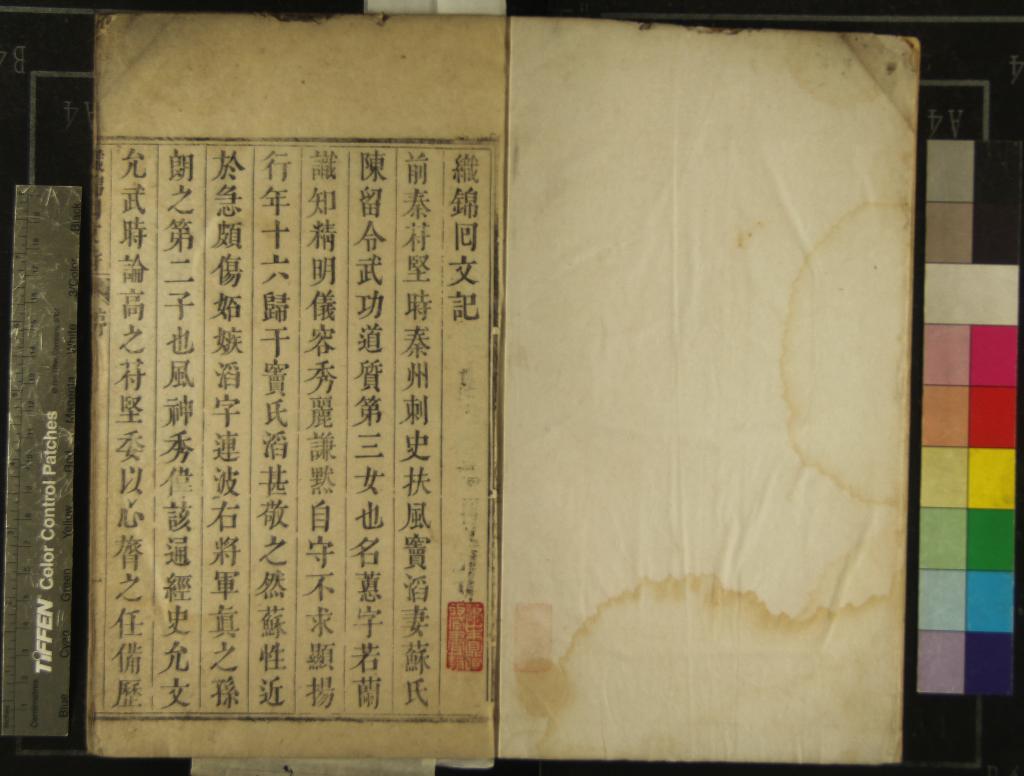 織錦回文記
前秦苻堅時秦州刺史扶風竇滔妻蘇氏
陳留令武功道質第三女也名蕙字若蘭
識知精明儀容秀麗謙黙自守不求顯揚
行年十六歸于竇氏滔甚敬之然蘇性近
於急頗傷妬嫉滔字連波右將軍眞之孫
朗之第二子也風神秀偉該通經史允文
允武時論高之苻堅委以心膂之任備歷
TIFFEN Color Control Patches
A4
A4
B4